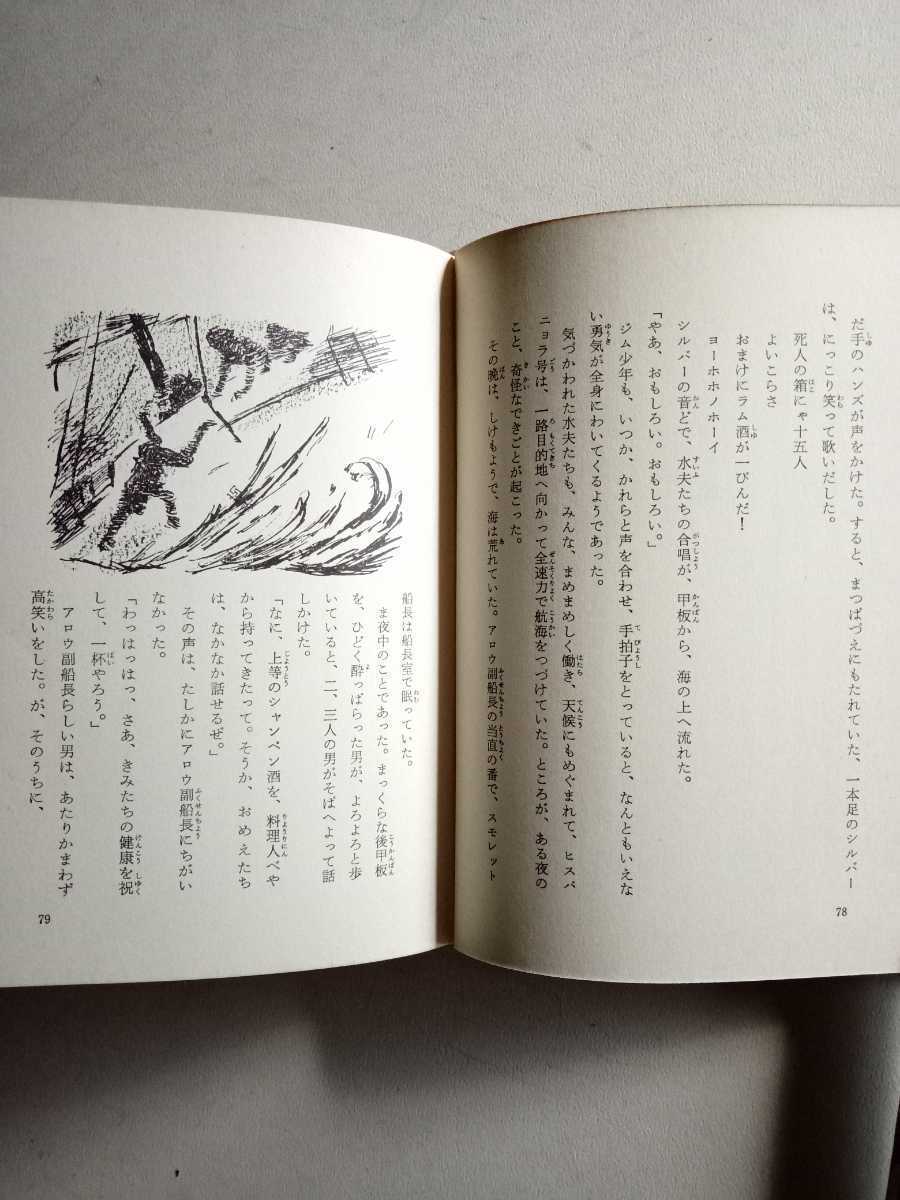 だ手のハンズが声をかけた。すると、まつばづえにもたれていた、一本足のシルバー
は、にっこり笑って歌いだした。
死人の箱にゃ十五人
よいこらさ
おまけにラム酒が一びんだ！
ヨーホホノホーイ
シルバーの音どで、水夫たちの合唱が、甲板から、海の上へ流れた。
「やあ、おもしろい。おもしろい。」
ジム少年も、いつか、かれらと声を合わせ、手拍子をとっていると、なんともいえな
い勇気が全身にわいてくるようであった。
気づかわれた水夫たちも、みんな、まめまめしく働き、天候にもめぐまれて、ヒスパ
ニョラ号は、一路目的地へ向かって全速力で航海をつづけていた。ところが、ある夜の
こと、奇怪なできごとが起こった。
その晩は、しけもようで、海は荒れていた。アロウ副船長の当直の番で、スモレット
78
船長は船長室で眠っていた。
ま夜中のことであった。まっくらな後甲板
を、ひどく酔っぱらった男が、よろよろと歩
いていると、二、三人の男がそばへよって話
しかけた。
「なに、上等のシャンペン酒を、料理人べや
から持ってきたって。そうか、おめえたち
は、なかなか話せるぜ。」
その声は、たしかにアロウ副船長にちがい
なかった。
「わっはっはっ、さあ、きみたちの健康を祝
して、一杯やろう。」
アロウ副船長らしい男は、あたりかまわず
高笑いをした。が、そのうちに、
79